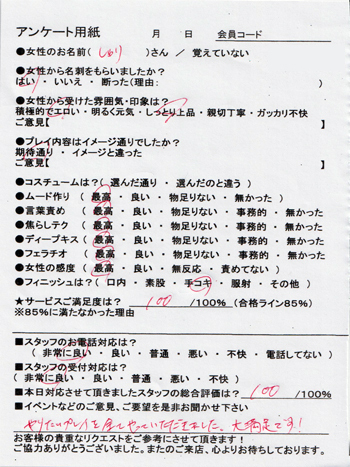 アンケート用紙　　月　　日　会員コード
●女性のお名前( しゅり )さん / 覚えていない
●女性から名刺をもらいましたか?
はい・いいえ・断った(理由:　　　)
●女性から受けた雰囲気・印象は?
積極的でエロい・明るく元気・しっとり上品・親切丁寧・ガッカリ不快
ご意見【　　　】
●プレイ内容はイメージ通りでしたか?
期待通り・イメージと違った
ご意見【　　　】
●コスチュームは?( 選んだ通り ・ 選んだのと違う )
●ムード作り ( 最高 ・ 良い ・ 物足りない ・ 無かった )
●言葉責め ( 最高 ・ 良い ・ 物足りない ・ 事務的 ・ 無かった )
●焦らしテク ( 最高 ・ 良い ・ 物足りない ・ 事務的 ・ 無かった )
●ディープキス ( 最高 ・ 良い ・ 物足りない ・ 事務的 ・ 無かった )
●フェラチオ ( 最高 ・ 良い ・ 物足りない ・ 事務的 ・ 無かった )
●女性の感度 ( 最高 ・ 良い ・ 無反応 ・ 責めてない )
●フィニッシュは?( 口内 ・ 素股 ・ 手コキ ・ 服射 ・ その他 )
★サービスご満足度は? 100 /100% (合格ライン85%)
※85%に満たなかった理由
■スタッフのお電話対応は?
( 非常に良い ・ 良い ・ 普通 ・ 悪い ・ 不快 ・ 電話してない )
■スタッフの受付対応は?
( 非常に良い ・ 良い ・ 普通 ・ 悪い ・ 不快 )
■本日対応させて頂きましたスタッフの総合評価は? 100 /100%
■イベントなどのご意見、ご要望を是非お聞かせ下さい
やりたいプレイを全てやっていただきました。大満足です!
お客様の貴重なリクエストをご参考にさせて頂きます!
ご協力ありがとうございました。またのご来店、心よりお待ちしております。